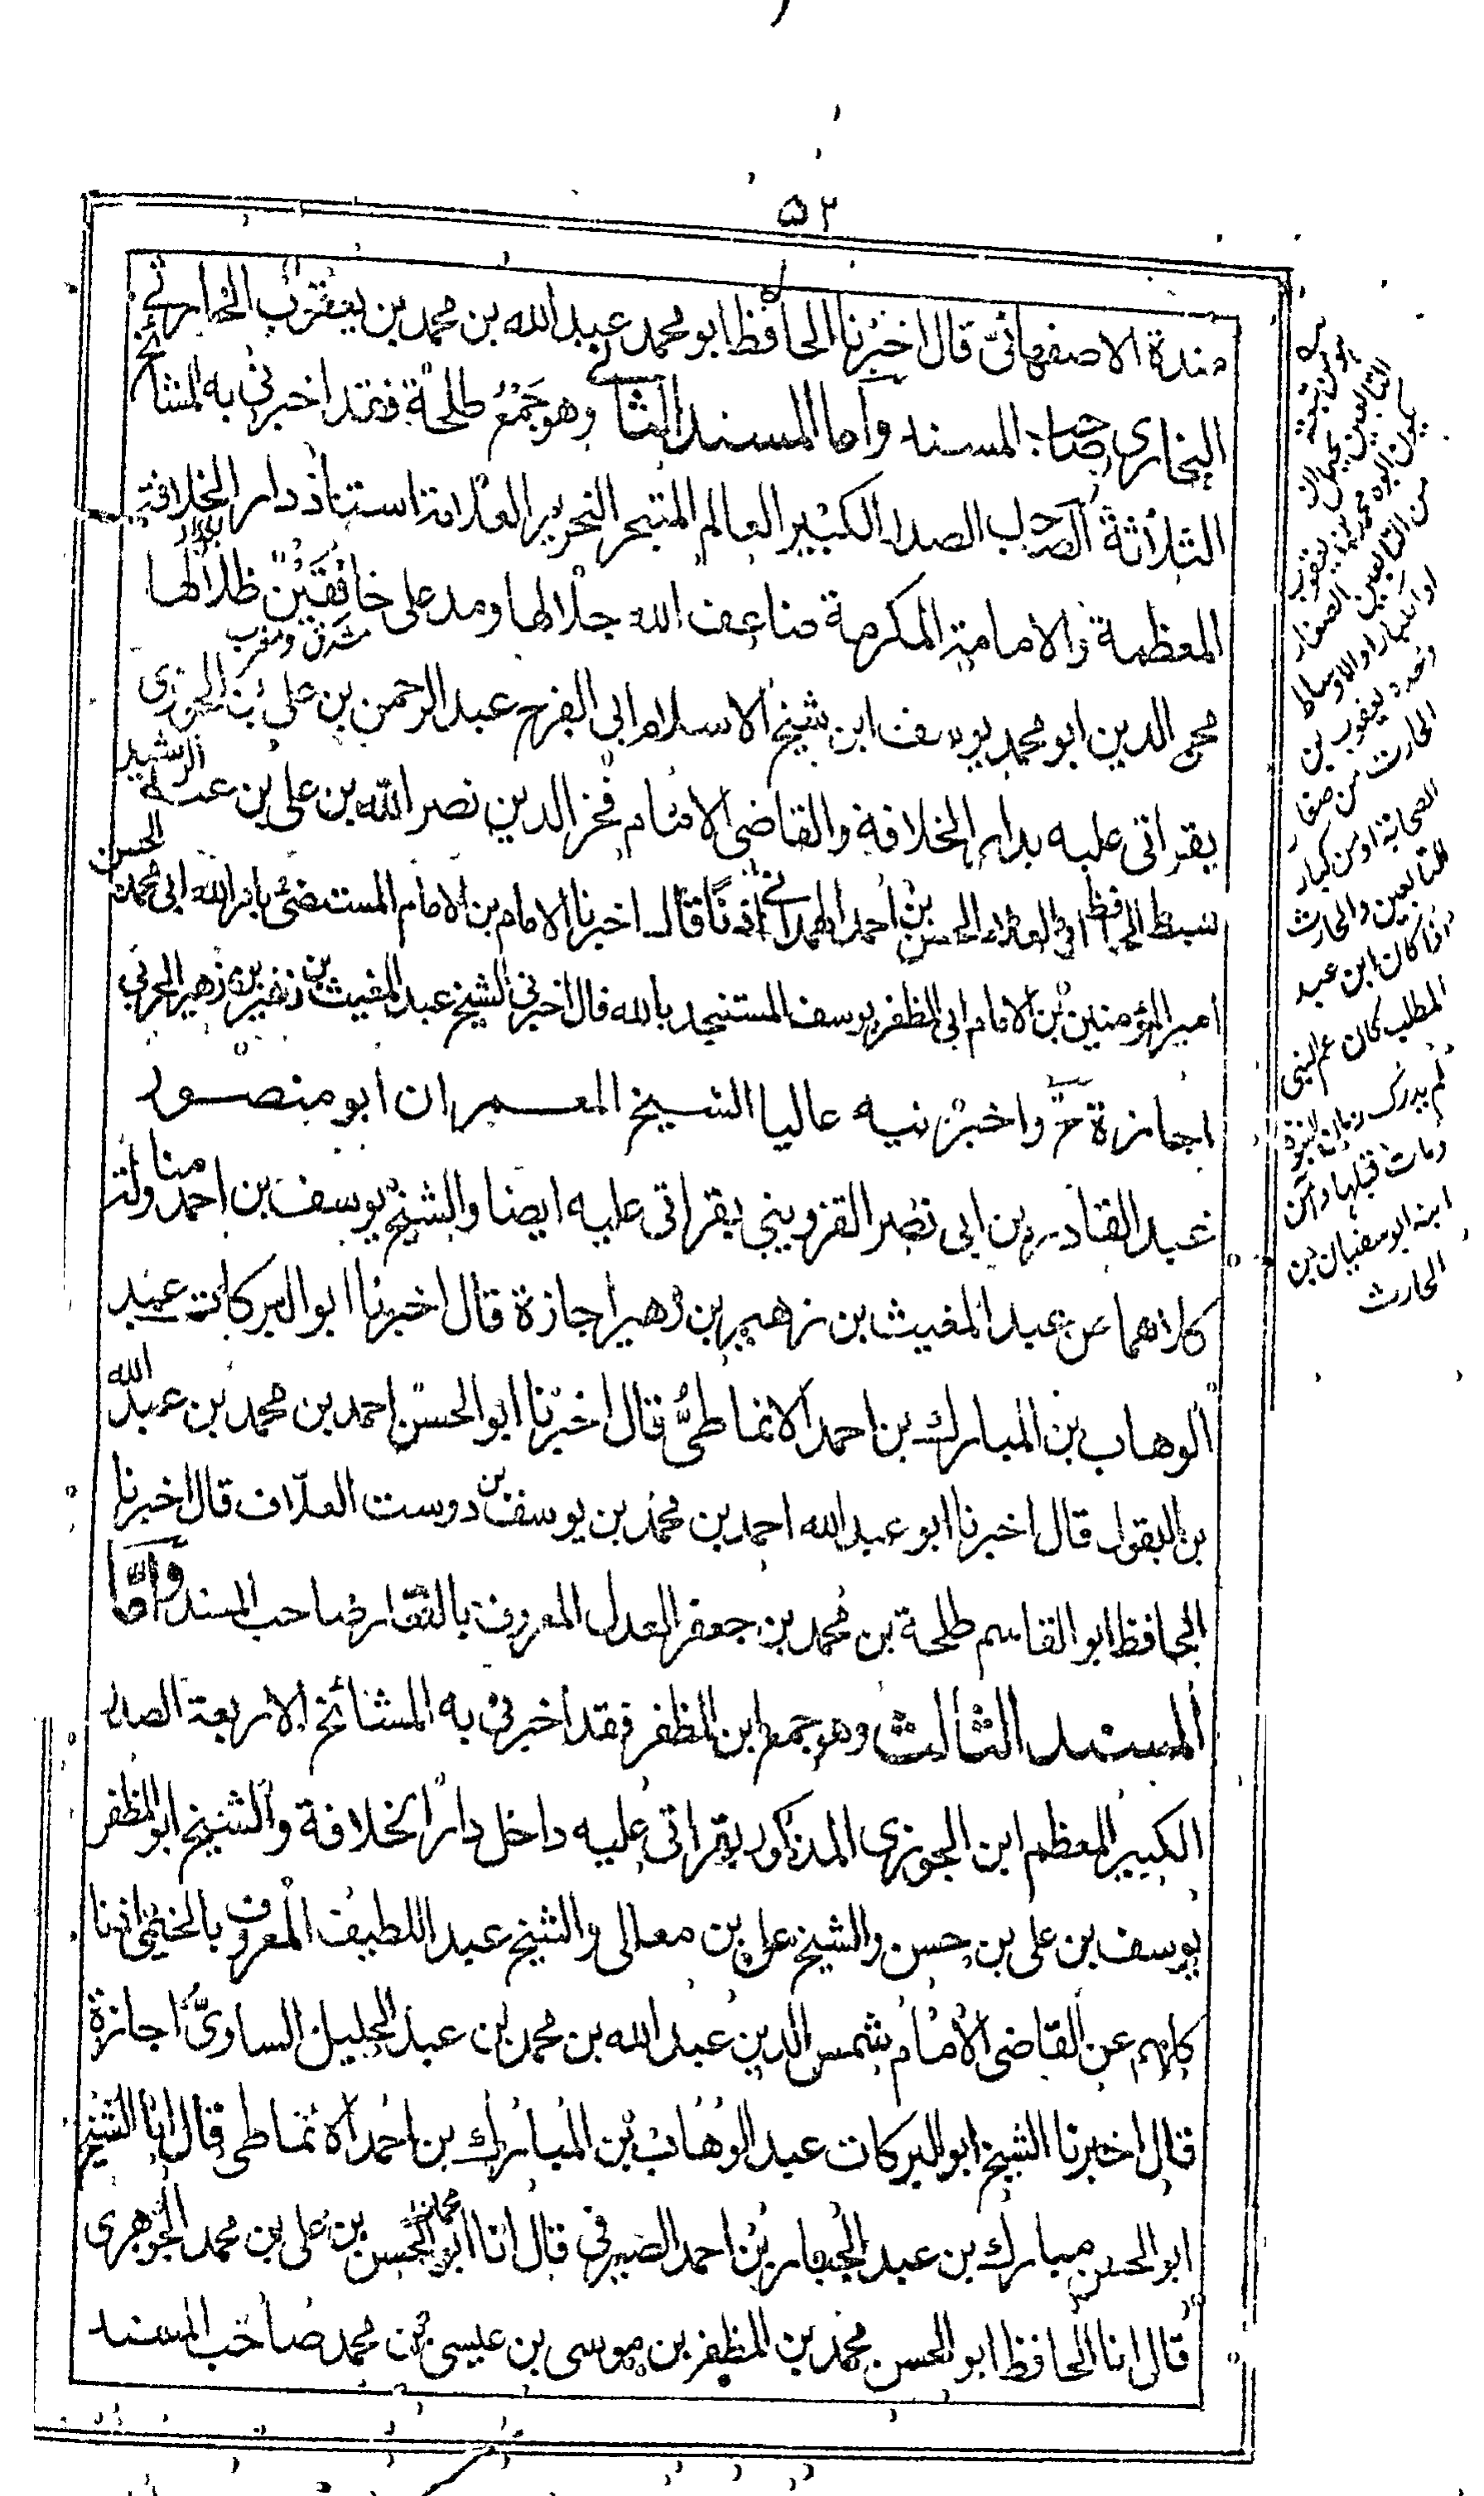 ٥٢
مندة الاصفهانى قال اخبرنا الحافظ ابو محمد عبد الله بن محمد بن يعقوب الحارثى
البخارى صاحب المسند واما المسند الثانى وهو جمع طلحة فقد اخبرنى به المشائخ
الثلاثة الصاحب الصدر الكبير العالم المتبحر النحرير العلامة استاذ دار الخلافة
المعظمة والامامة المكرمة ضاعف الله جلالها ومد على خافقين ظلالها
مشرق ومغرب
محى الدين ابو محمد يوسف ابن شيخ الاسلام ابى الفرج عبد الرحمن بن على بن الجوزى
بقراتى عليه بدار الخلافة والقاضى الامام فخر الدين نصر الله بن على بن عبد الرشيد
سبط الحافظ ابى العلاء الحسن بن احمد الهمدانى اذنا قال اخبرنا الامام بن الامام المستضئ بامر الله ابى محمد الحسن
امير المؤمنين بن الامام ابى المظفر يوسف المستنجد بالله قال اخبرنى الشيخ عبد المغيث بن زهير بن زهير الحربى
اجازة ح واخبرنيه عاليا الشيخ المعمران ابو منصور
عبد القادر بن ابى نصر القزوينى بقراتى عليه ايضا والشيخ يوسف بن احمد مناولة
كلاهما عن عبد المغيث بن زهير بن زهير اجازة قال اخبرنا ابو البركات عبد
الوهاب بن المبارك بن احمد الانماطى قال اخبرنا ابو الحسن احمد بن محمد بن عبد الله
بن البقول قال اخبرنا ابو عبد الله احمد بن محمد بن يوسف بن دوست العلاف قال اخبرنا
الحافظ ابو القاسم طلحة بن محمد بن جعفر العدل المعروف بالشقار صاحب المسند واما
المسند الثالث وهو جمع ابن المظفر فقد اخبرنى به المشائخ الاربعة الصدر
الكبير المعظم ابن الجوزى المذكور بقراتى عليه داخل دار الخلافة والشيخ ابو المظفر
يوسف بن على بن حسن والشيخ على بن معالى والشيخ عبد اللطيف المعروف اذنا
كلهم عن القاضى الامام شمس الدين عبد الله بن محمد بن عبد الجليل الساوى اجازة
قال اخبرنا الشيخ ابو البركات عبد الوهاب بن المبارك بن احمد الانماطى قال انا الشيخ
ابو الحسن مبارك بن عبد الجبار بن احمد الصيرفى قال انا ابو محمد الحسن بن على بن محمد الجوهرى
قال انا الحافظ ابو الحسن محمد بن المظفر بن موسى بن عيسى بن محمد صاحب المسند
من التابعين
الحارث من صغار
الصحابة او من كبار
التابعين والحارث
كان ابن عبد
المطلب كان عم النبى
لم يدرك زمان النبوة
ومات قبلها وآمن
ابنه ابو سفيان بن
الحارث